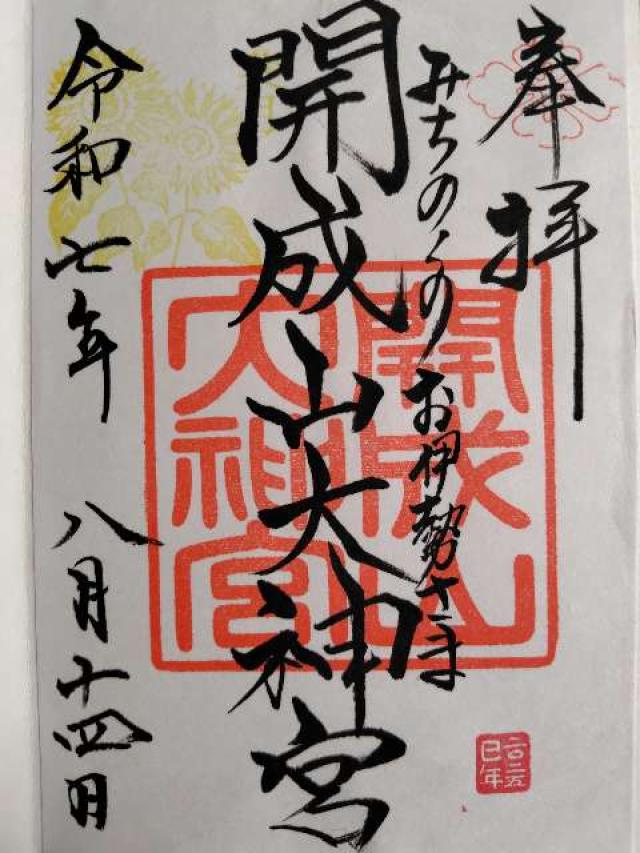 奉拝
みちのくのお伊勢さま
開成山大神宮
令和七年 八月十四日
開成山
大神宮
二〇二五
巳年